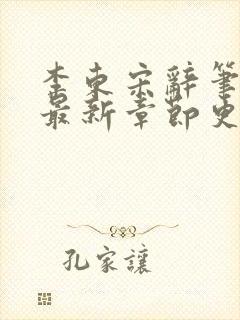 李東宋辭筆
最新章節史
孔家讓